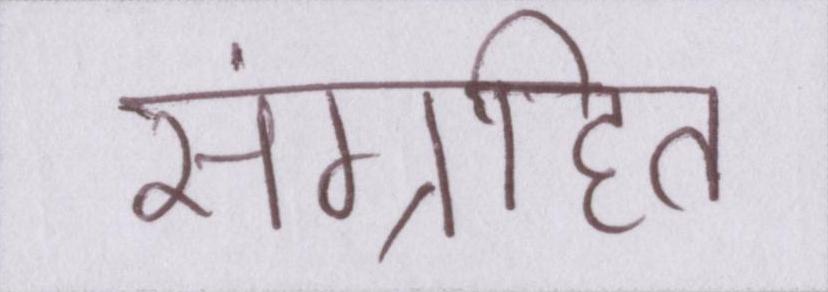 संग्रहित